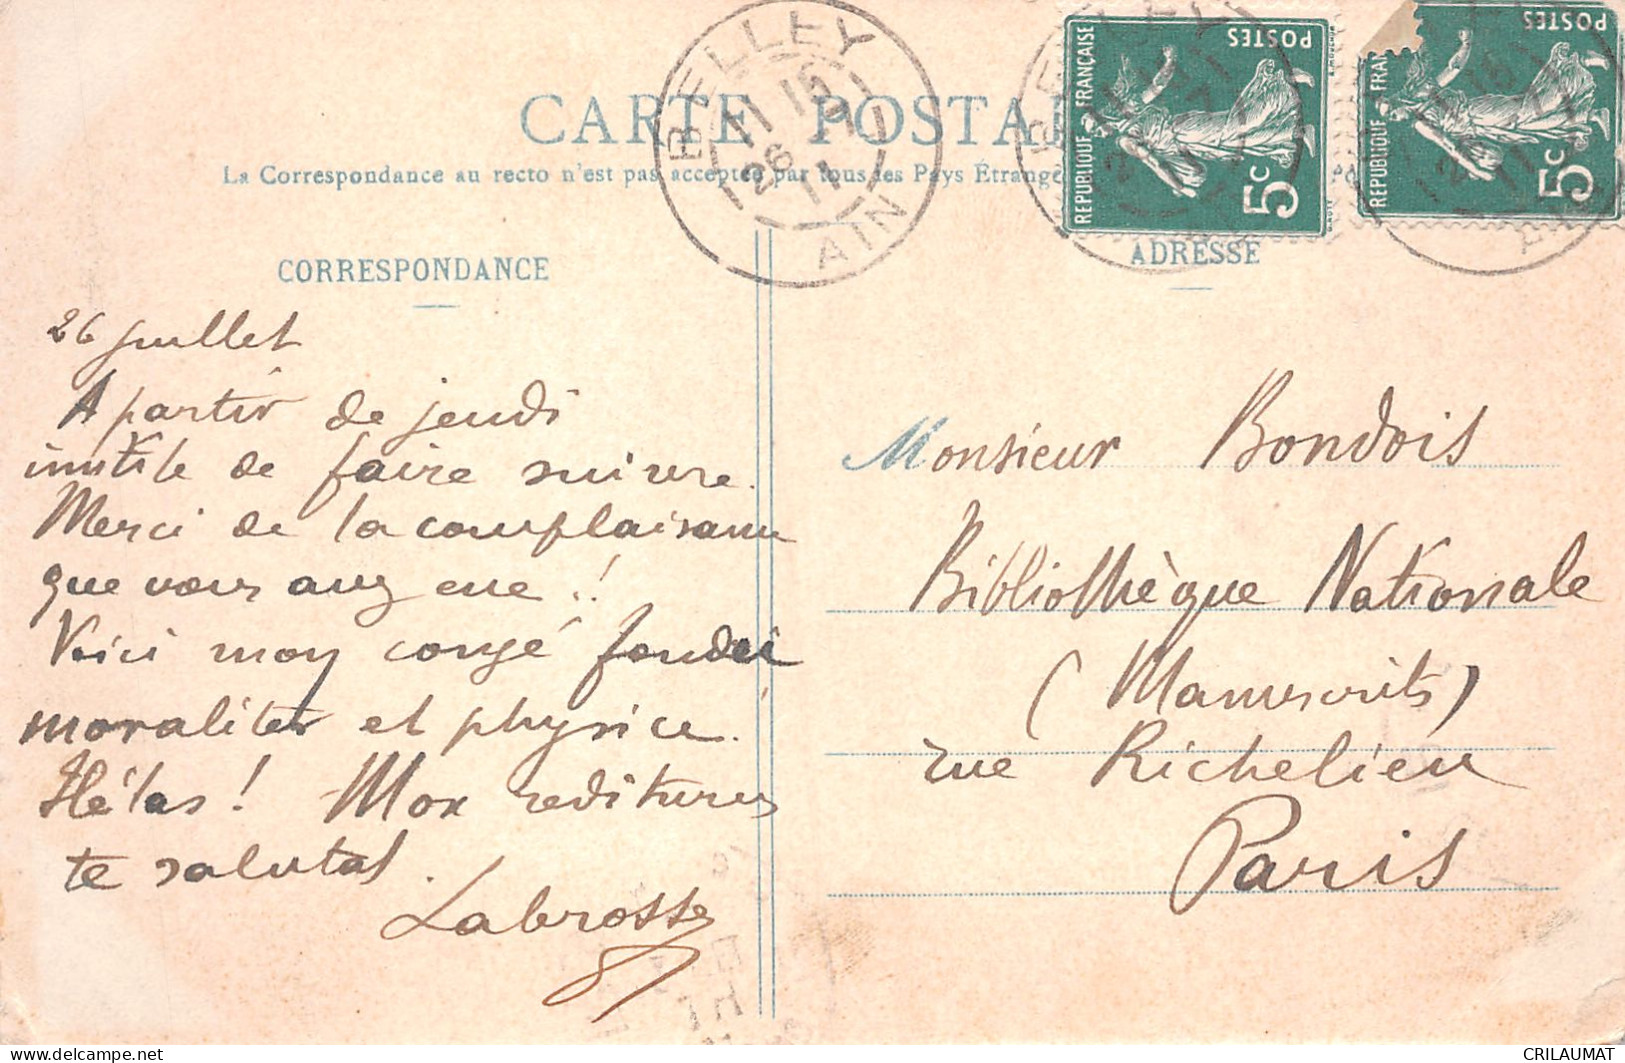 CARTE POSTA
La Correspondance au recto n'est pas acceptée par tous les Pays Étrange
BELLEY
11 15
26 7
11
AIN
REPUBLIQUE FRANÇAISE
POSTES
5c
REPUBLIQUE FRA
POSTES
5c
CORRESPONDANCE
26 juillet
A partir de jeudi
inutile de faire suivre.
Merci de la complaisance
que vous avez eue !
Voici mon congé
moraliter et physice.
Hélas ! Mox rediturus
te salutat.
Labrosse
ADRESSE
Monsieur Bondois
Bibliothèque Nationale
(Manuscrits)
rue Richelieu
Paris
CRILAUMAT